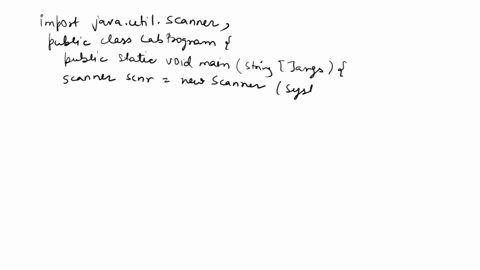 import java.util.scanner,
public class LabProgram {
public static void main (string [ ]args) {
scanner scnr = new Scanner (Sys